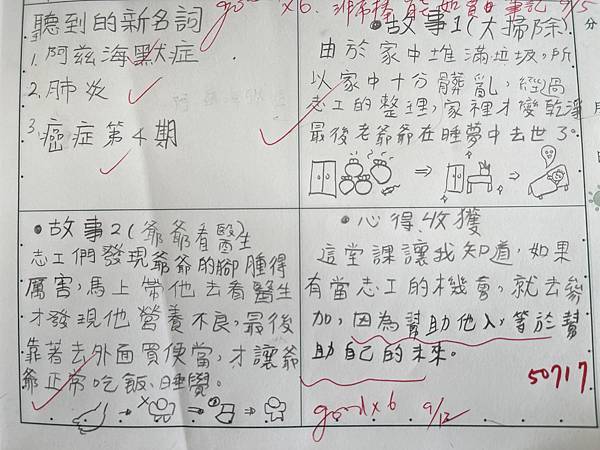 聽到的新名詞
1. 阿茲海默症
2. 肺炎
3. 癌症第4期
good x6. 非常棒
9/5
分
故事1(大掃除)
由於家中堆滿垃圾,所
以家中十分髒亂,經過
志工的整理,家裡才變乾淨
最後老爺爺在睡夢中去世了。
故事2(爺爺看醫生)
志工們發現爺爺的腳腫得
厲害,馬上帶他去看醫生
才發現他營養不良,最後
靠著去外面買便當,才讓爺
爺正常吃飯、睡覺。
心得收獲
這堂課讓我知道,如果
有當志工的機會,就去參
加,因為幫助他人,等於幫
助自己的未來。
50717
good x6 9/12